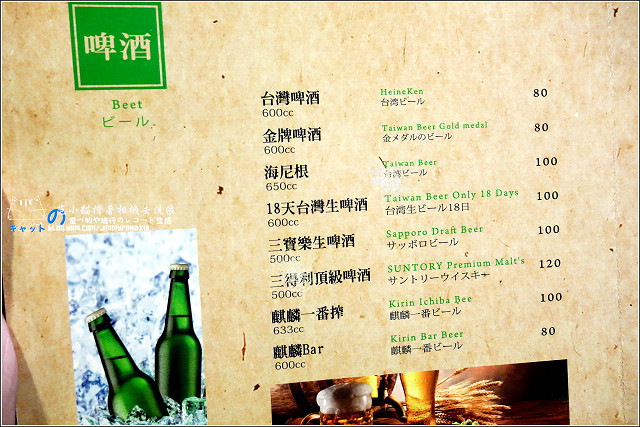 啤酒
Beet
ビール
台灣啤酒 HeineKen 80
600cc 台湾ビール
金牌啤酒 Taiwan Beer Gold medal 80
600cc 金メダルのビール
海尼根 Taiwan Beer 100
650cc 台湾ビール
18天台灣生啤酒 Taiwan Beer Only 18 Days 100
600cc 台湾生ビール18日
三寶樂生啤酒 Sapporo Draft Beer 100
500cc サッポロビール
三得利頂級啤酒 SUNTORY Premium Malt's 120
500cc サントリーウイスキー
麒麟一番搾 Kirin Ichiba Bee 100
633cc 麒麟一番ビール
麒麟Bar Kirin Bar Beer 80
600cc 麒麟一番ビール
キャットの